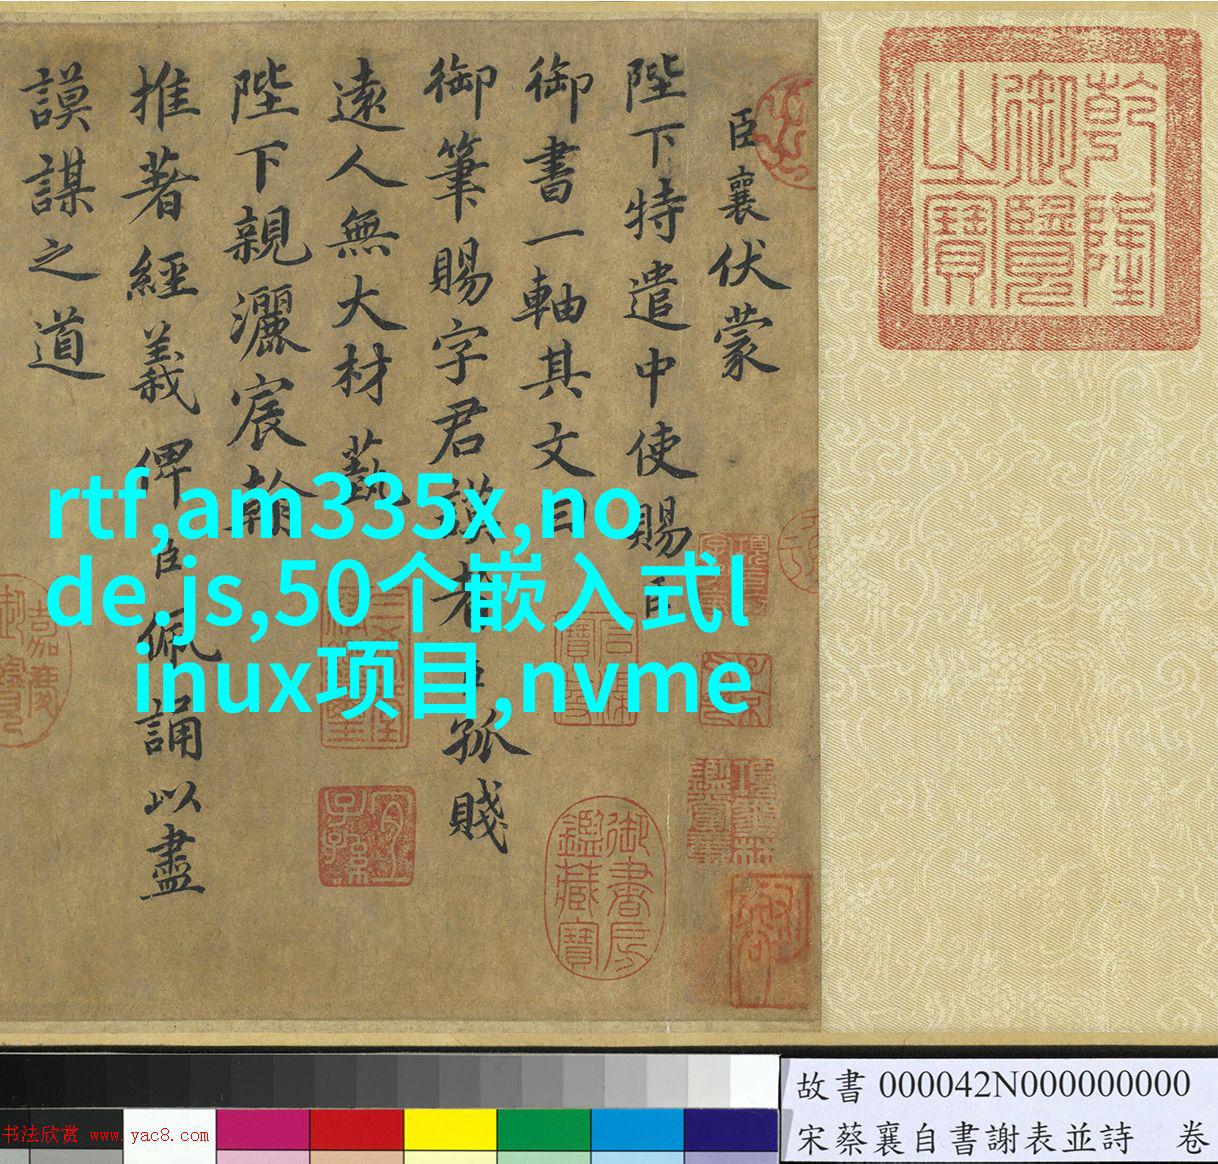 乾隆御覽之寶
臣襄伏蒙
陛下特遣中使賜臣
御書一軸其文曰
御筆賜字君謨者臣孤賤
遠人無大材藝
陛下親灑宸翰
推著經義俾臣佩誦以盡
謨謀之道
御書房鑑藏寶
宜子孫
rtf,am335x,no
de.js,50个嵌入式l
inux项目,nvme
故書 000042N000000000
宋蔡襄自書謝表並詩 卷
书法欣赏 www.yac8.com